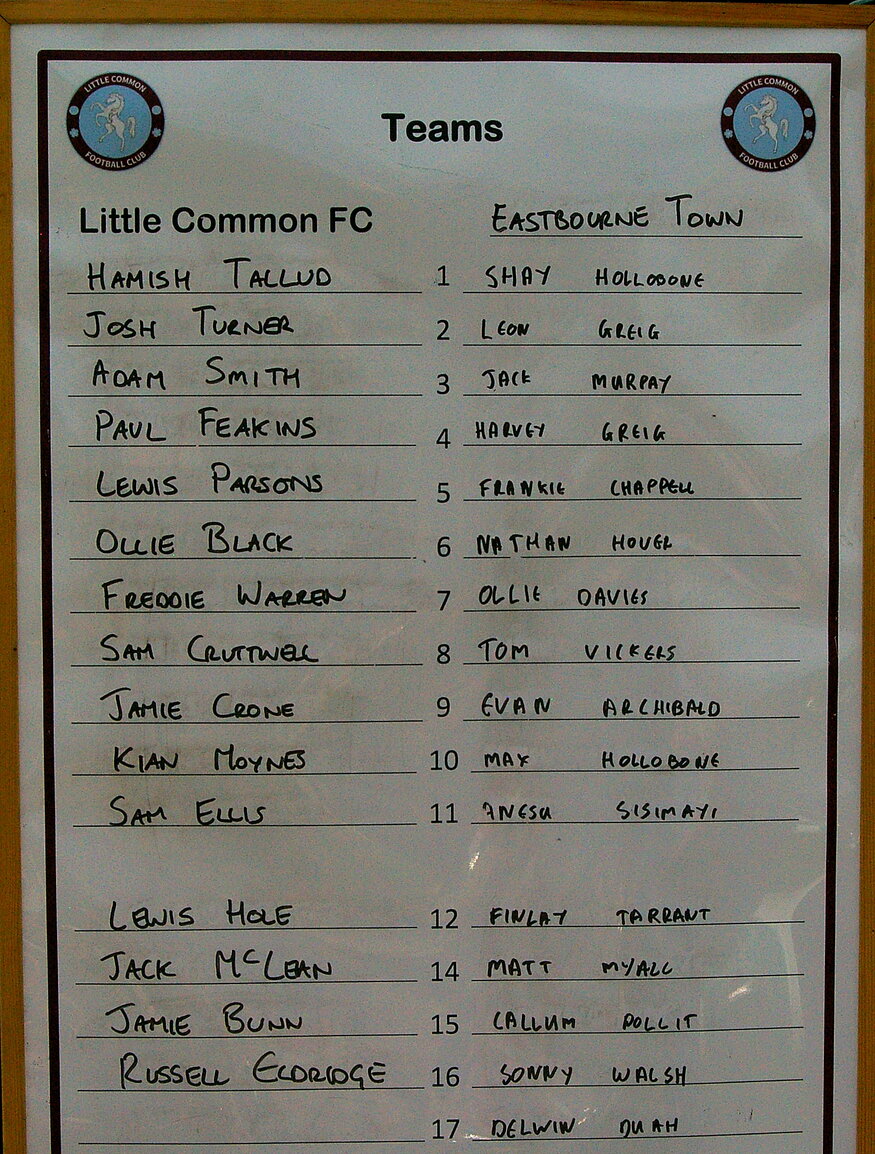 LITTLE COMMON FOOTBALL CLUB
LITTLE COMMON FOOTBALL CLUB
Teams
Little Common FC EASTBOURNE TOWN
HAMISH TALLUD 1 SHAY HOLLOBONE
JOSH TURNER 2 LEON GREIG
ADAM SMITH 3 JACK MURPAY
PAUL FEAKINS 4 HARVEY GREIG
LEWIS PARSONS 5 FRANKIE CHAPPELL
OLLIE BLACK 6 NATHAN HOVEL
FREDDIE WARREN 7 OLLIE DAVIES
SAM CRUTTWELL 8 TOM VICKERS
JAMIE CRONE 9 EVAN ARCHIBALD
KIAN MOYNES 10 MAX HOLLOBONE
SAM ELLIS 11 ANESU SISIMAYI
LEWIS HOLE 12 FINLAY TARRANT
JACK McLEAN 14 MATT MYALL
JAMIE BUNN 15 CALLUM POLLIT
RUSSELL ELDRIDGE 16 SONNY WALSH
17 DELWIN DUAH